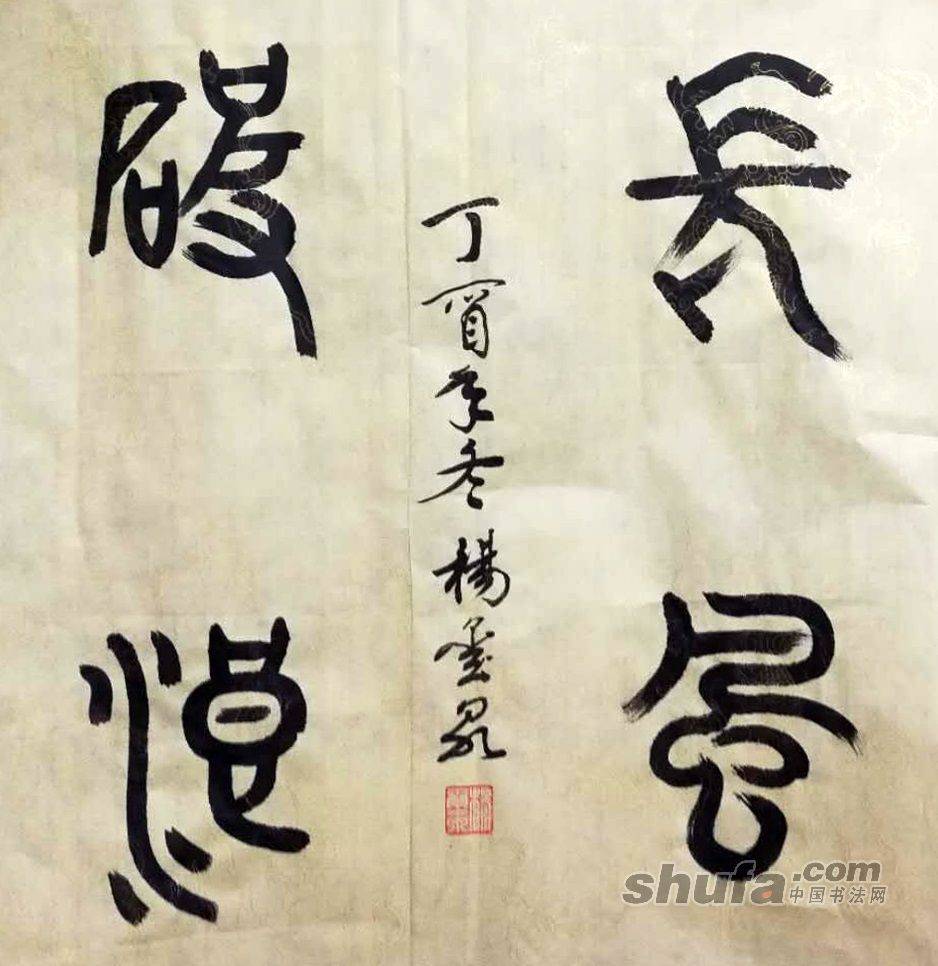 長風
破浪
丁酉年冬楊泉
shufa.com
中国书法网